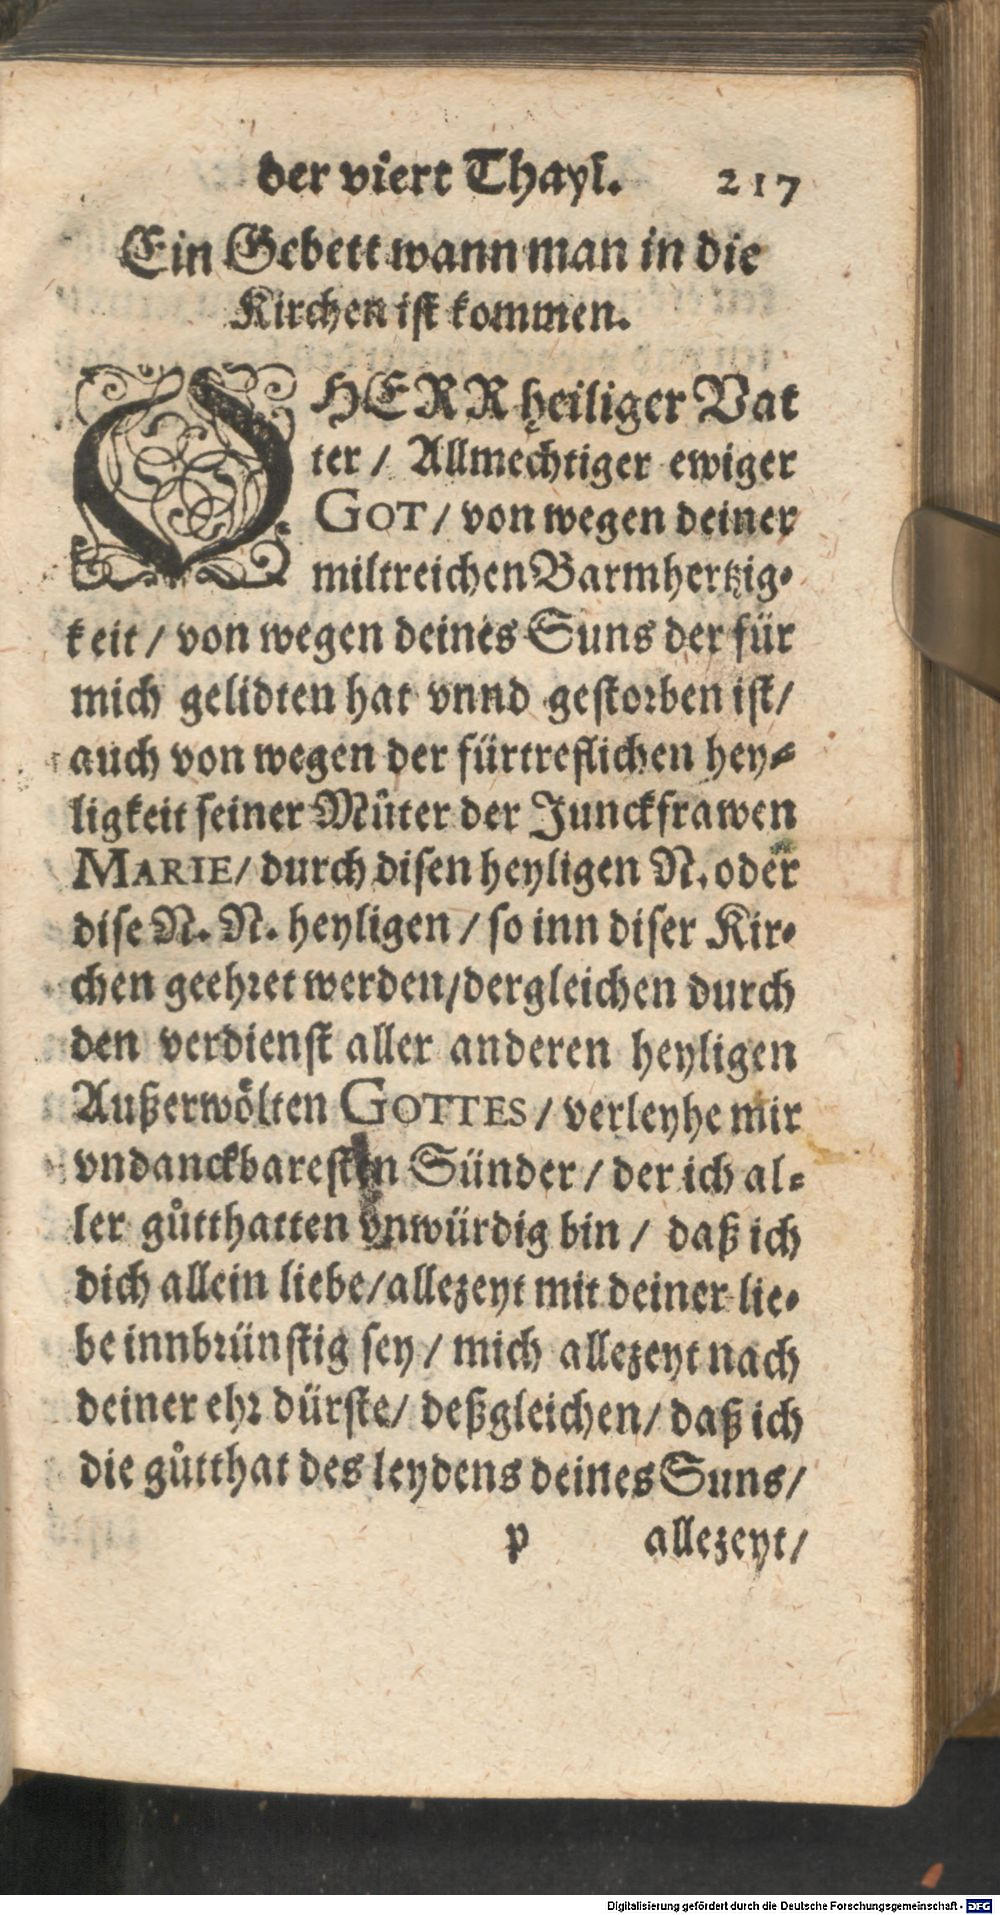 der viert Thayl. 217
Ein Gebett wann man in die
Kirchen ist kommen.
O HERR heiliger Vat
ter / Allmechtiger ewiger
GOT / von wegen deiner
miltreichen Barmhertzig-
keit / von wegen deines Suns der für
mich gelidten hat vnnd gestorben ist /
auch von wegen der fürtreflichen hey-
ligkeit seiner Můter der Junckfrawen
MARIE / durch disen heyligen N. oder
dise N. N. heyligen / so inn diser Kir-
chen geehret werden / dergleichen durch
den verdienst aller anderen heyligen
Außerwölten GOTTES / verleyhe mir
vndanckbaresten Sünder / der ich al-
ler gůtthatten vnwürdig bin / daß ich
dich allein liebe / allezeyt mit deiner lie-
be innbrünstig sey / mich allezeyt nach
deiner ehr dürste / deßgleichen / daß ich
die gůtthat des leydens deines Suns /
p allezeyt /
Digitalisierung gefördert durch die Deutsche Forschungsgemeinschaft - DFG